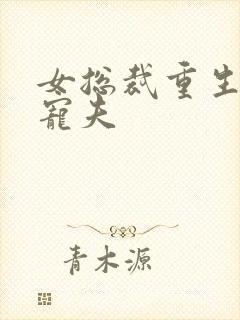 女总裁重生
寵夫
青木源